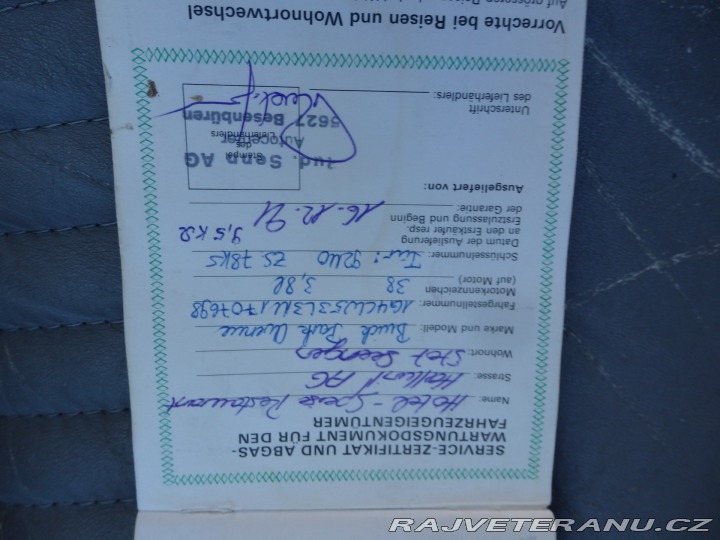 SERVICE-ZERTIFIKAT UND ABGAS-
WARTUNGSDOKUMENT FÜR DEN
FAHRZEUGEIGENTÜMER
Name: Hotel - Speise Restaurant
Strasse: Hallwil AG
Wohnort:
Marke und Modell: Buick Park Avenue
Fahrgestellnummer: 1G4CW53L3M1707698
Motorkennzeichen 38 3,8l
(auf Motor)
Schlüsselnummer: Tür: 9240 ZS. 78K5
Datum der Auslieferung 9,5 K
an den Erstkäufer resp.
Erstzulassung und Beginn
der Garantie: 16-12-91
Ausgeliefert von:
Jud. Senn AG
Stempel
des
Lieferhändlers
Autocenter
5627 Besenbüren
Unterschrift
des Lieferhändlers:
Vorrechte bei Reisen und Wohnortwechsel
RAJVETERANU.CZ